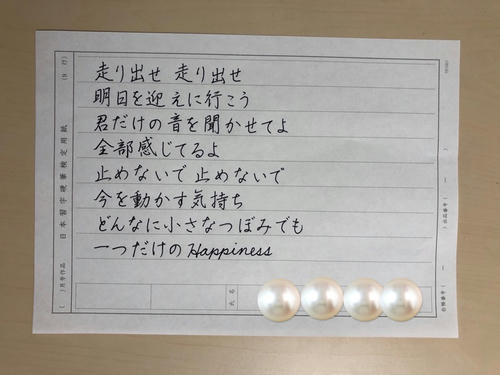 走り出せ 走り出せ
明日を迎えに行こう
君だけの音を聞かせてよ
全部感じてるよ
止めないで 止めないで
今を動かす気持ち
どんなに小さなつぼみでも
一つだけのHappiness
日本習字硬筆検定用紙
(9 行)
( )月号作品
氏名